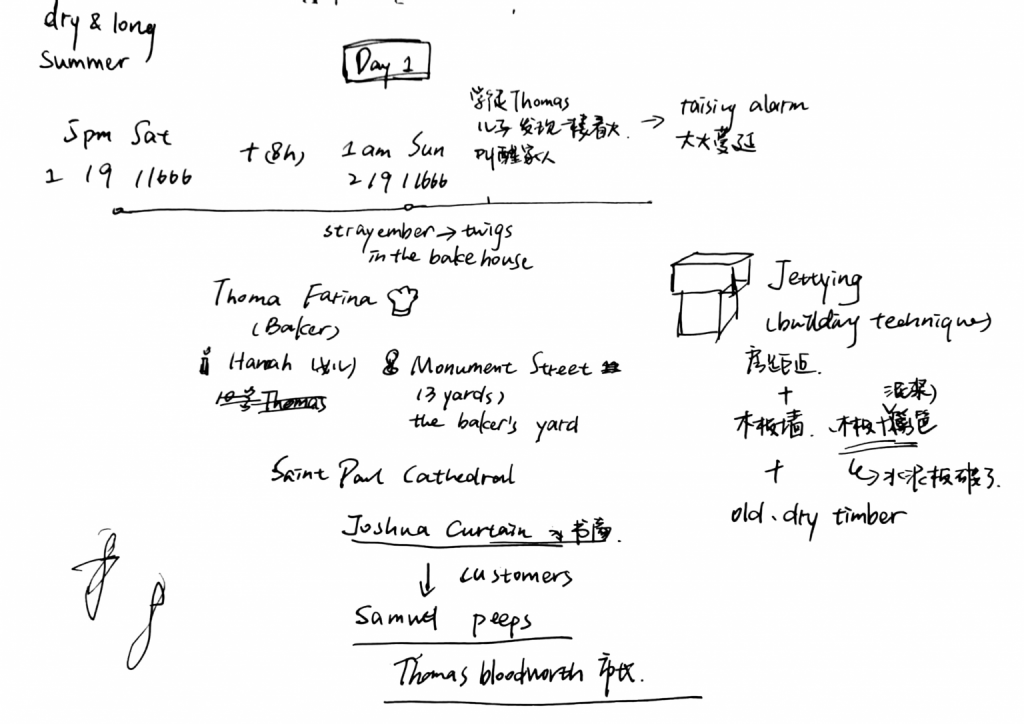 dry & long
summer
Day 1
5pm Sat
1 19 11666
+(8h)
1am Sun
2 19 11666
学徒Thomas
儿子发现一楼着火.
叫醒家人
→ raising alarm
大火蔓延
stray ember → twigs
in the bakehouse
Thoma Farina
(Baker)
Hannah (女儿)
Thomas
Monument Street
(3 yards)
the baker's yard
Saint Paul Cathedral
Joshua Curtain
↓ customers
Samuel peeps
Thomas bloodworth 市长.
Jettying
(building techniques)
房距近.
+
木板墙. 木板+
(泥浆)
↳ 水泥板破了.
+
old、dry timber